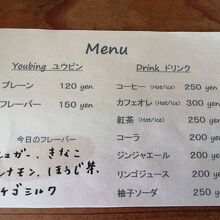 Menu
Youbing ユウビン
プレーン 120 yen
フレーバー 150 yen
今日のフレーバー
ュガー、きなこ
ナモン、ほうじ茶
ゴミルク
Drink ドリンク
コーヒー (Hot/ice) 250 yen
カフェオレ (Hot/ice) 300 yen
紅茶 (Hot/ice) 250 yen
コーラ 200 yen
ジンジャエール 200 yen
リンゴジュース 200 yen
柚子ソーダ 250 yen